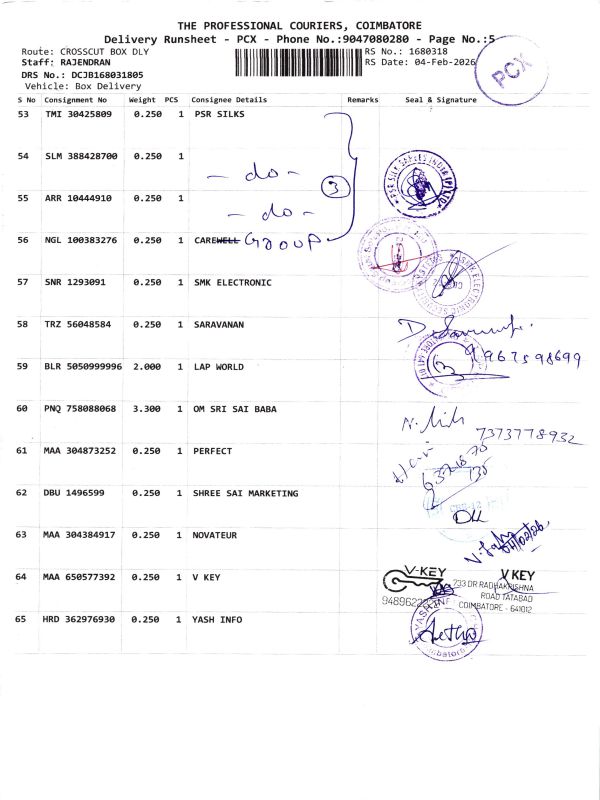 THE PROFESSIONAL COURIERS, COIMBATORE
Delivery Runsheet - PCX - Phone No.:9047080280 - Page No.:5
Route: CROSSCUT BOX DLY
RS No.: 1680318
Staff: RAJENDRAN
RS Date: 04-Feb-2026
PCX
DRS No.: DCJB168031805
Vehicle: Box Delivery
S No Consignment No Weight PCS Consignee Details Remarks Seal & Signature
53 TMI 30425809 0.250 1 PSR SILKS
54 SLM 388428700 0.250 1 - do -
3
PSR SILK SAREES INDIA (P) LTD
55 ARR 10444910 0.250 1 - do -
56 NGL 100383276 0.250 1 CAREWELL GROUP
57 SNR 1293091 0.250 1 SMK ELECTRONIC
58 TRZ 56048584 0.250 1 SARAVANAN
59 BLR 5050999996 2.000 1 LAP WORLD
60 PNQ 758088068 3.300 1 OM SRI SAI BABA
7373778932
61 MAA 304873252 0.250 1 PERFECT
62 DBU 1496599 0.250 1 SHREE SAI MARKETING
63 MAA 304384917 0.250 1 NOVATEUR
04/02/26
64 MAA 650577392 0.250 1 V KEY
V-KEY
V KEY
733 DR RADHAKRISHNA
ROAD TATABAD
COIMBATORE - 641012
65 HRD 362976930 0.250 1 YASH INFO